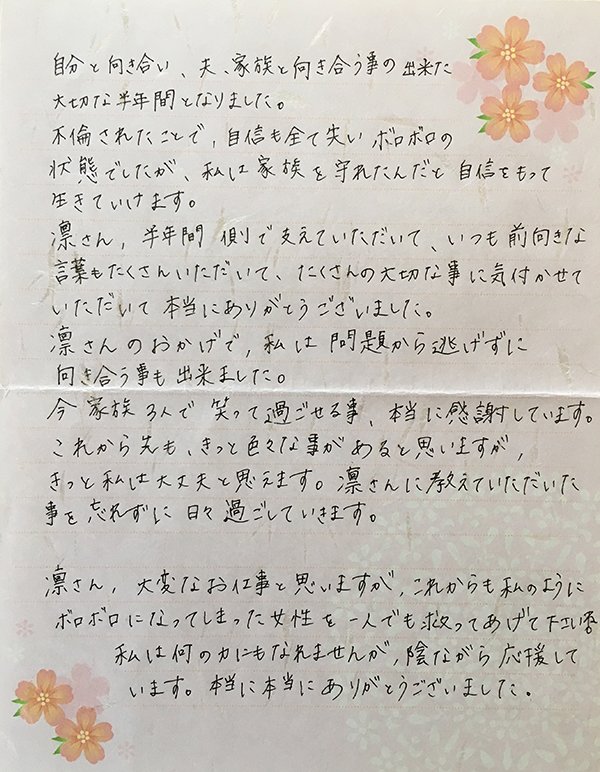 自分と向き合い、夫、家族と向き合う事の出来た
大切な半年間となりました。
不倫されたことで、自信も全て失いボロボロの
状態でしたが、私は家族を守れたんだと自信をもって
生きていけます。
凛さん、半年間側で支えていただいて、いつも前向きな
言葉もたくさんいただいて、たくさんの大切な事に気付かせて
いただいて本当にありがとうございました。
凛さんのおかげで、私は問題から逃げずに
向き合う事も出来ました。
今家族3人で笑って過ごせる事、本当に感謝しています。
これから先も、きっと色々な事があると思いますが、
きっと私は大丈夫と思えます。凛さんに教えていただいた
事を忘れずに日々過ごしていきます。
凛さん、大変なお仕事と思いますが、これからも私のように
ボロボロになってしまった女性を一人でも救ってあげて下さい
私は何の力にもなれませんが、陰ながら応援して
います。本当に本当にありがとうございました。